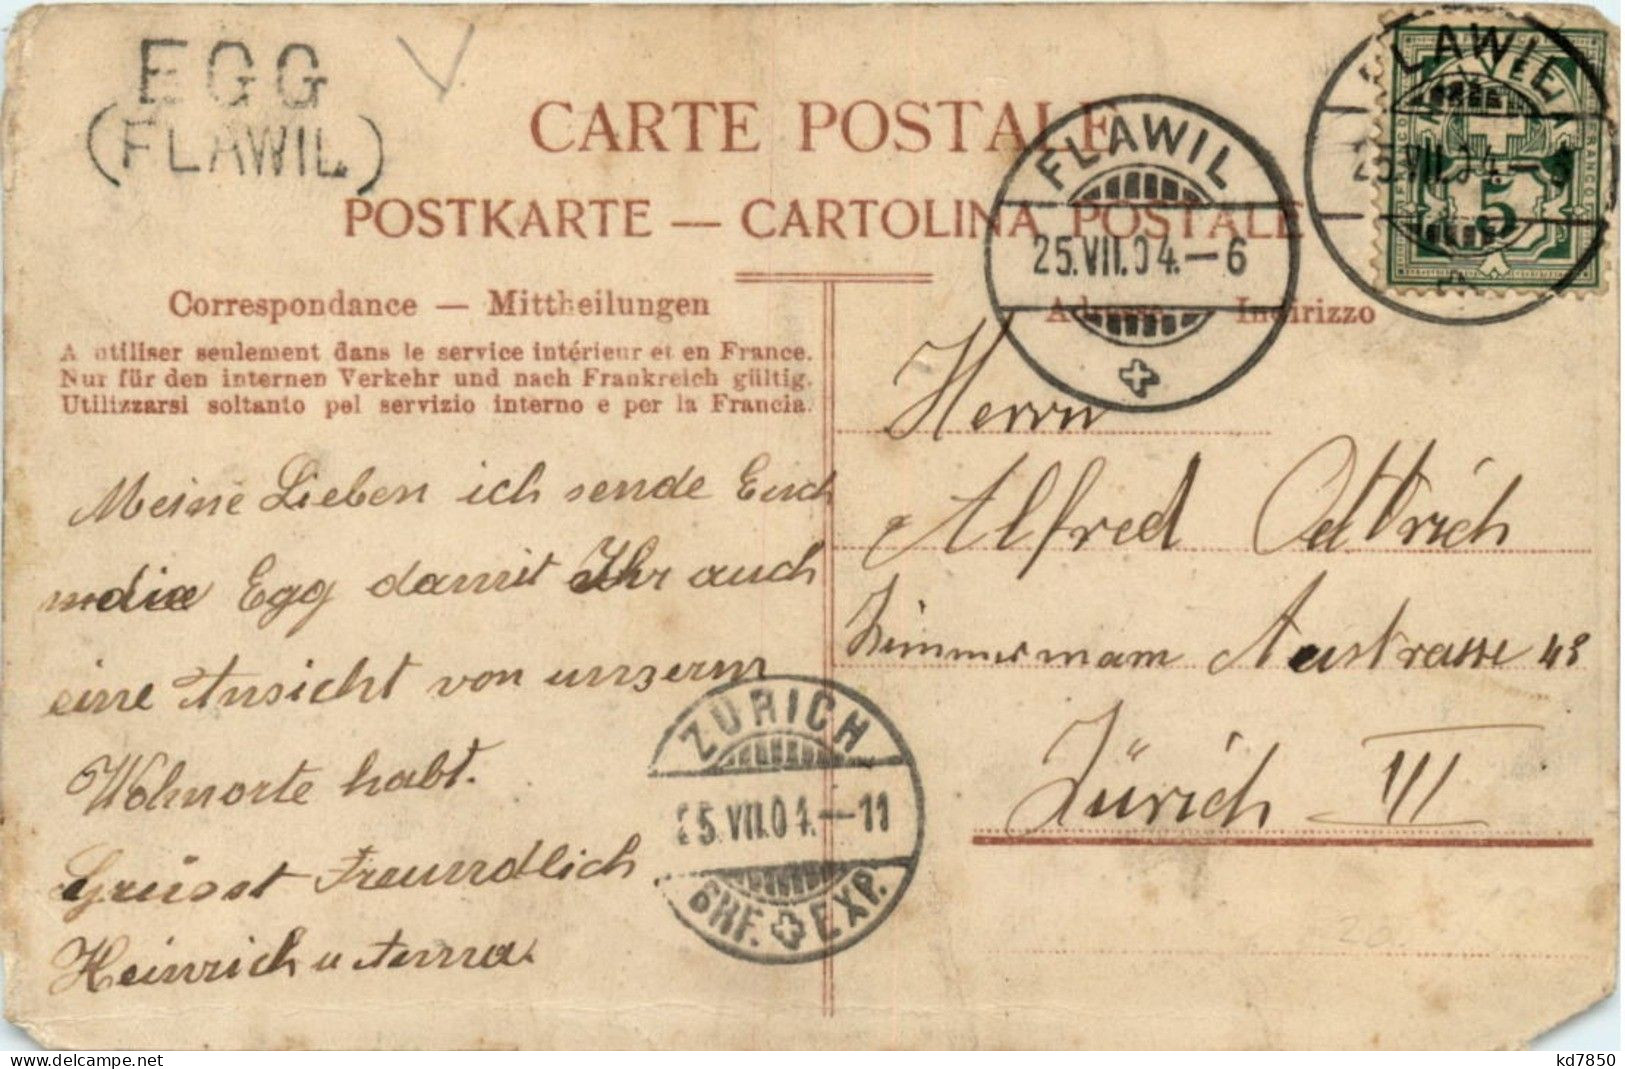 EGG
(FLAWIL)
V.
CARTE POSTALE
POSTKARTE — CARTOLINA POSTALE
FLAWIL
25.VII.04.—6
FLAWIL
25.VII.04.—
FRANCO
5
Correspondance — Mittheilungen
Adresse Indirizzo
A utiliser seulement dans le service intérieur et en France.
Nur für den internen Verkehr und nach Frankreich gültig.
Utilizzarsi soltanto pel servizio interno e per la Francia.
Meine Lieben ich sende Euch
die Egg damit Ihr auch
eine Ansicht von unserm
Wohnorte habt.
Grüsst Freundlich
Heinrich u Anna.
Herrn
Alfred Ottrich
Zimmermann Austrasse 48
Zürich III
ZÜRICH
25.VII.04.—11
BRF. EXP.
20.
kd7850